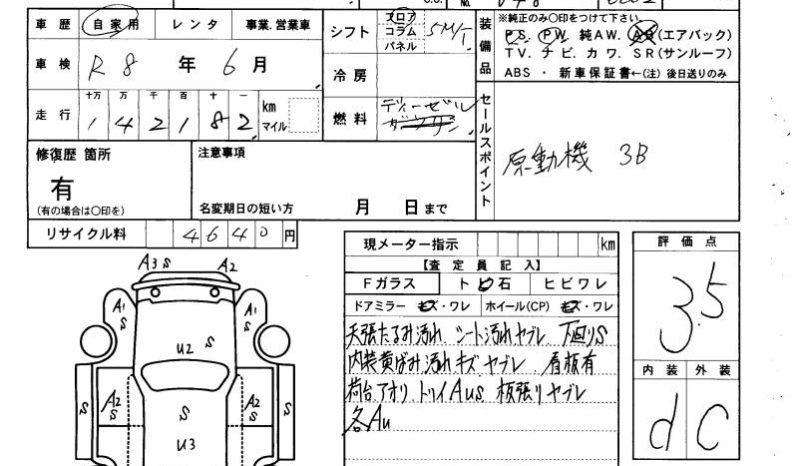 車歴 自家用 レンタ 事業.営業車
シフト フロア コラム パネル 5M/T
装備品 ※純正のみ〇印をつけて下さい。
PS. PW. 純AW. AB(エアバック)
TV. ナビ. カワ. SR(サンルーフ)
ABS ・ 新車保証書←(注) 後日送りのみ
車検 R8 年 6月
冷房
走行 十万 万 千 百 十 一 km マイル
1 4 2 1 8 2
燃料 ディーゼル ガソリン
セールスポイント
原動機 3B
修復歴 箇所
有
(有の場合は〇印を)
注意事項
名変期日の短い方 月 日まで
リサイクル料 4640円
現メーター指示 km
【査定員記入】
Fガラス ト ビ 石 ヒビワレ
ドアミラー キズ・ワレ ホイール(CP) キズ・ワレ
天張たるみ汚れ シート汚れヤブレ 下回りS
内装黄ばみ汚れキズヤブレ 看板有
荷台.アオリ.トリイAUS 板張りヤブレ
各AU
評価点
3.5
内装 外装
d C
A3 S A2
A1 S A1 S
U2 S
A2 S S A2 S
S S
U3